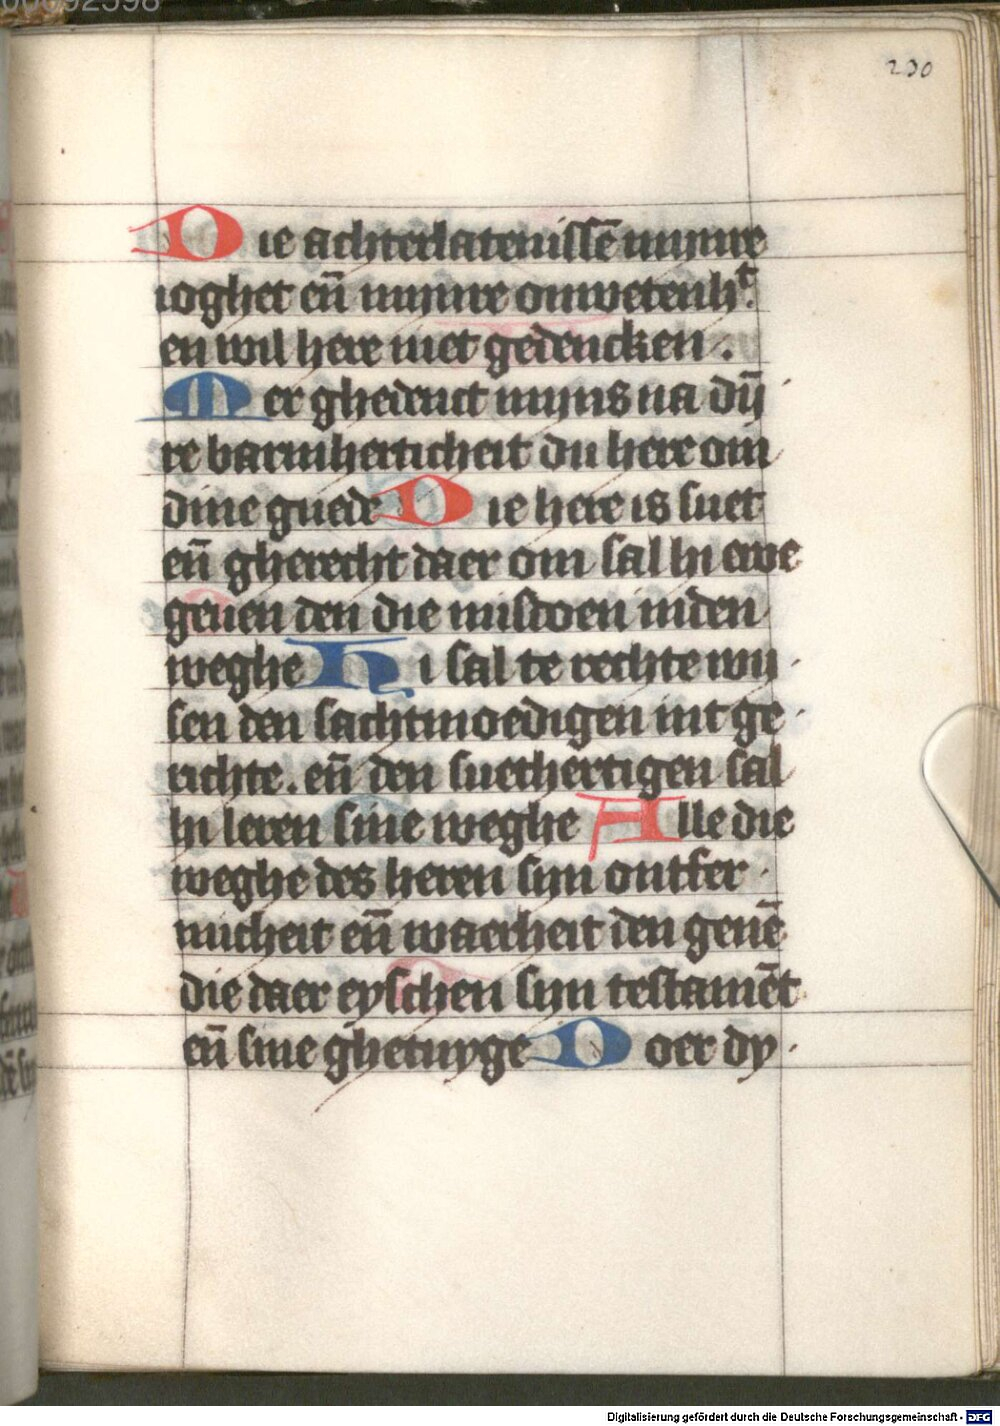 230
Die achterlatenissē mynre
ioghet en̄ mynre onwetenhᵗ.
en wil here niet gedencken.
Mer ghedenct myns na dȳ
re barmherticheit du here om
dine guede Die here is suet
en̄ gherecht daer om sal hi ewe
geuen den die misdoen inden
weghe Hi sal te rechte wy
sen den sachtmoedigen int ge
richte. en̄ den suethertigen sal
hi leren sine weghe Alle die
weghe des heren sijn ontfer
micheit en̄ waerheit den genē
die daer eyschen sijn testamēt
en̄ sine ghetuyge Doer dy
Digitalisierung gefördert durch die Deutsche Forschungsgemeinschaft - DFG